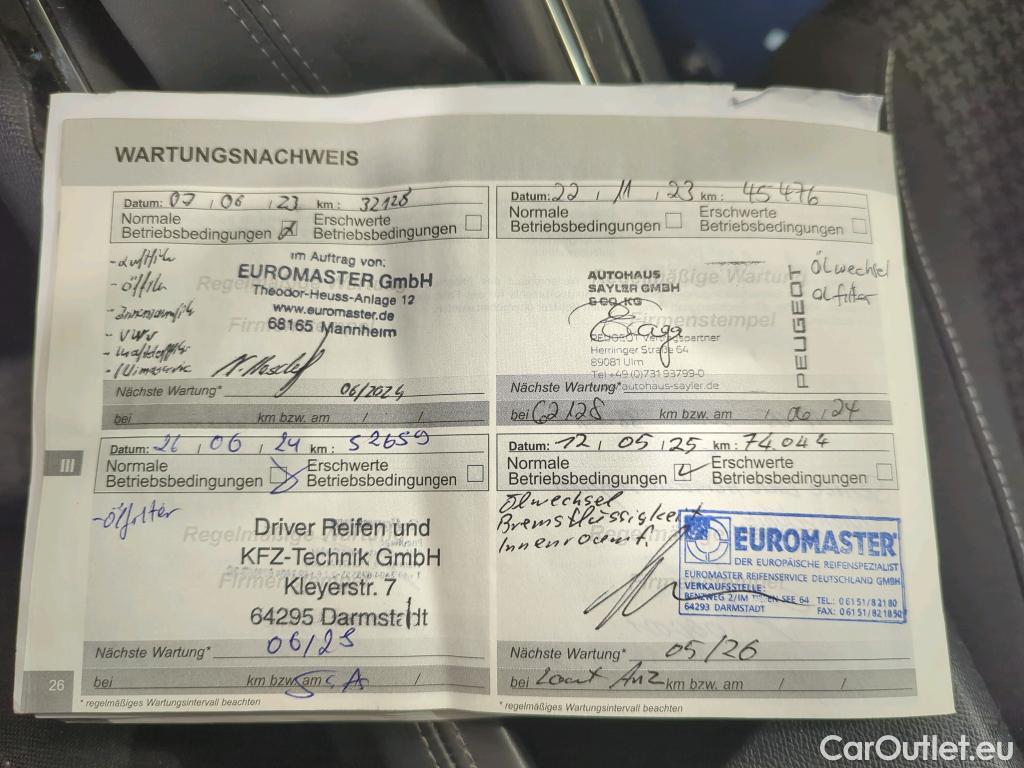 WARTUNGSNACHWEIS
Datum: 07 / 06 / 23 km: 32128
Normale Betriebsbedingungen
Erschwerte Betriebsbedingungen
- Ölfilter
im Auftrag von:
EUROMASTER GmbH
Theodor-Heuss-Anlage 12
www.euromaster.de
68165 Mannheim
Nächste Wartung* 06/2024
bei km bzw. am / /
Datum: 22 / 11 / 23 km: 45476
Normale Betriebsbedingungen
Erschwerte Betriebsbedingungen
Regelmäßige Wartung
Firmenstempel
Ölwechsel
Ölfilter
AUTOHAUS
SAYLER GMBH
& CO. KG
PEUGEOT Vertragspartner
Herrlinger Straße 64
89081 Ulm
Tel +49 (0)731 93799-0
autohaus-sayler.de
PEUGEOT
Nächste Wartung*
bei 62128 km bzw. am / 06 / 24
III
Datum: 26 / 06 / 24 km: 52659
Normale Betriebsbedingungen
Erschwerte Betriebsbedingungen
- Ölfilter
Regelmäßige Wartung
Driver Reifen und
KFZ-Technik GmbH
Kleyerstr. 7
64295 Darmstadt
Nächste Wartung* 06/25
bei km bzw. am /
Datum: 12 / 05 / 25 km: 74.044
Normale Betriebsbedingungen
Erschwerte Betriebsbedingungen
Ölwechsel
Bremsflüssigkeit
EUROMASTER
DER EUROPÄISCHE REIFENSPEZIALIST
EUROMASTER REIFENSERVICE DEUTSCHLAND GMBH
VERKAUFSSTELLE:
BENZWEG 2/IM TIEFEN SEE 64 TEL.: 0 61 51 / 8 21 80
64293 DARMSTADT FAX: 0 61 51 / 82 18 50
Nächste Wartung* 05/26
bei laut Anz km bzw. am / /
26
* regelmäßiges Wartungsintervall beachten
* regelmäßiges Wartungsintervall beachten
CarOutlet.eu